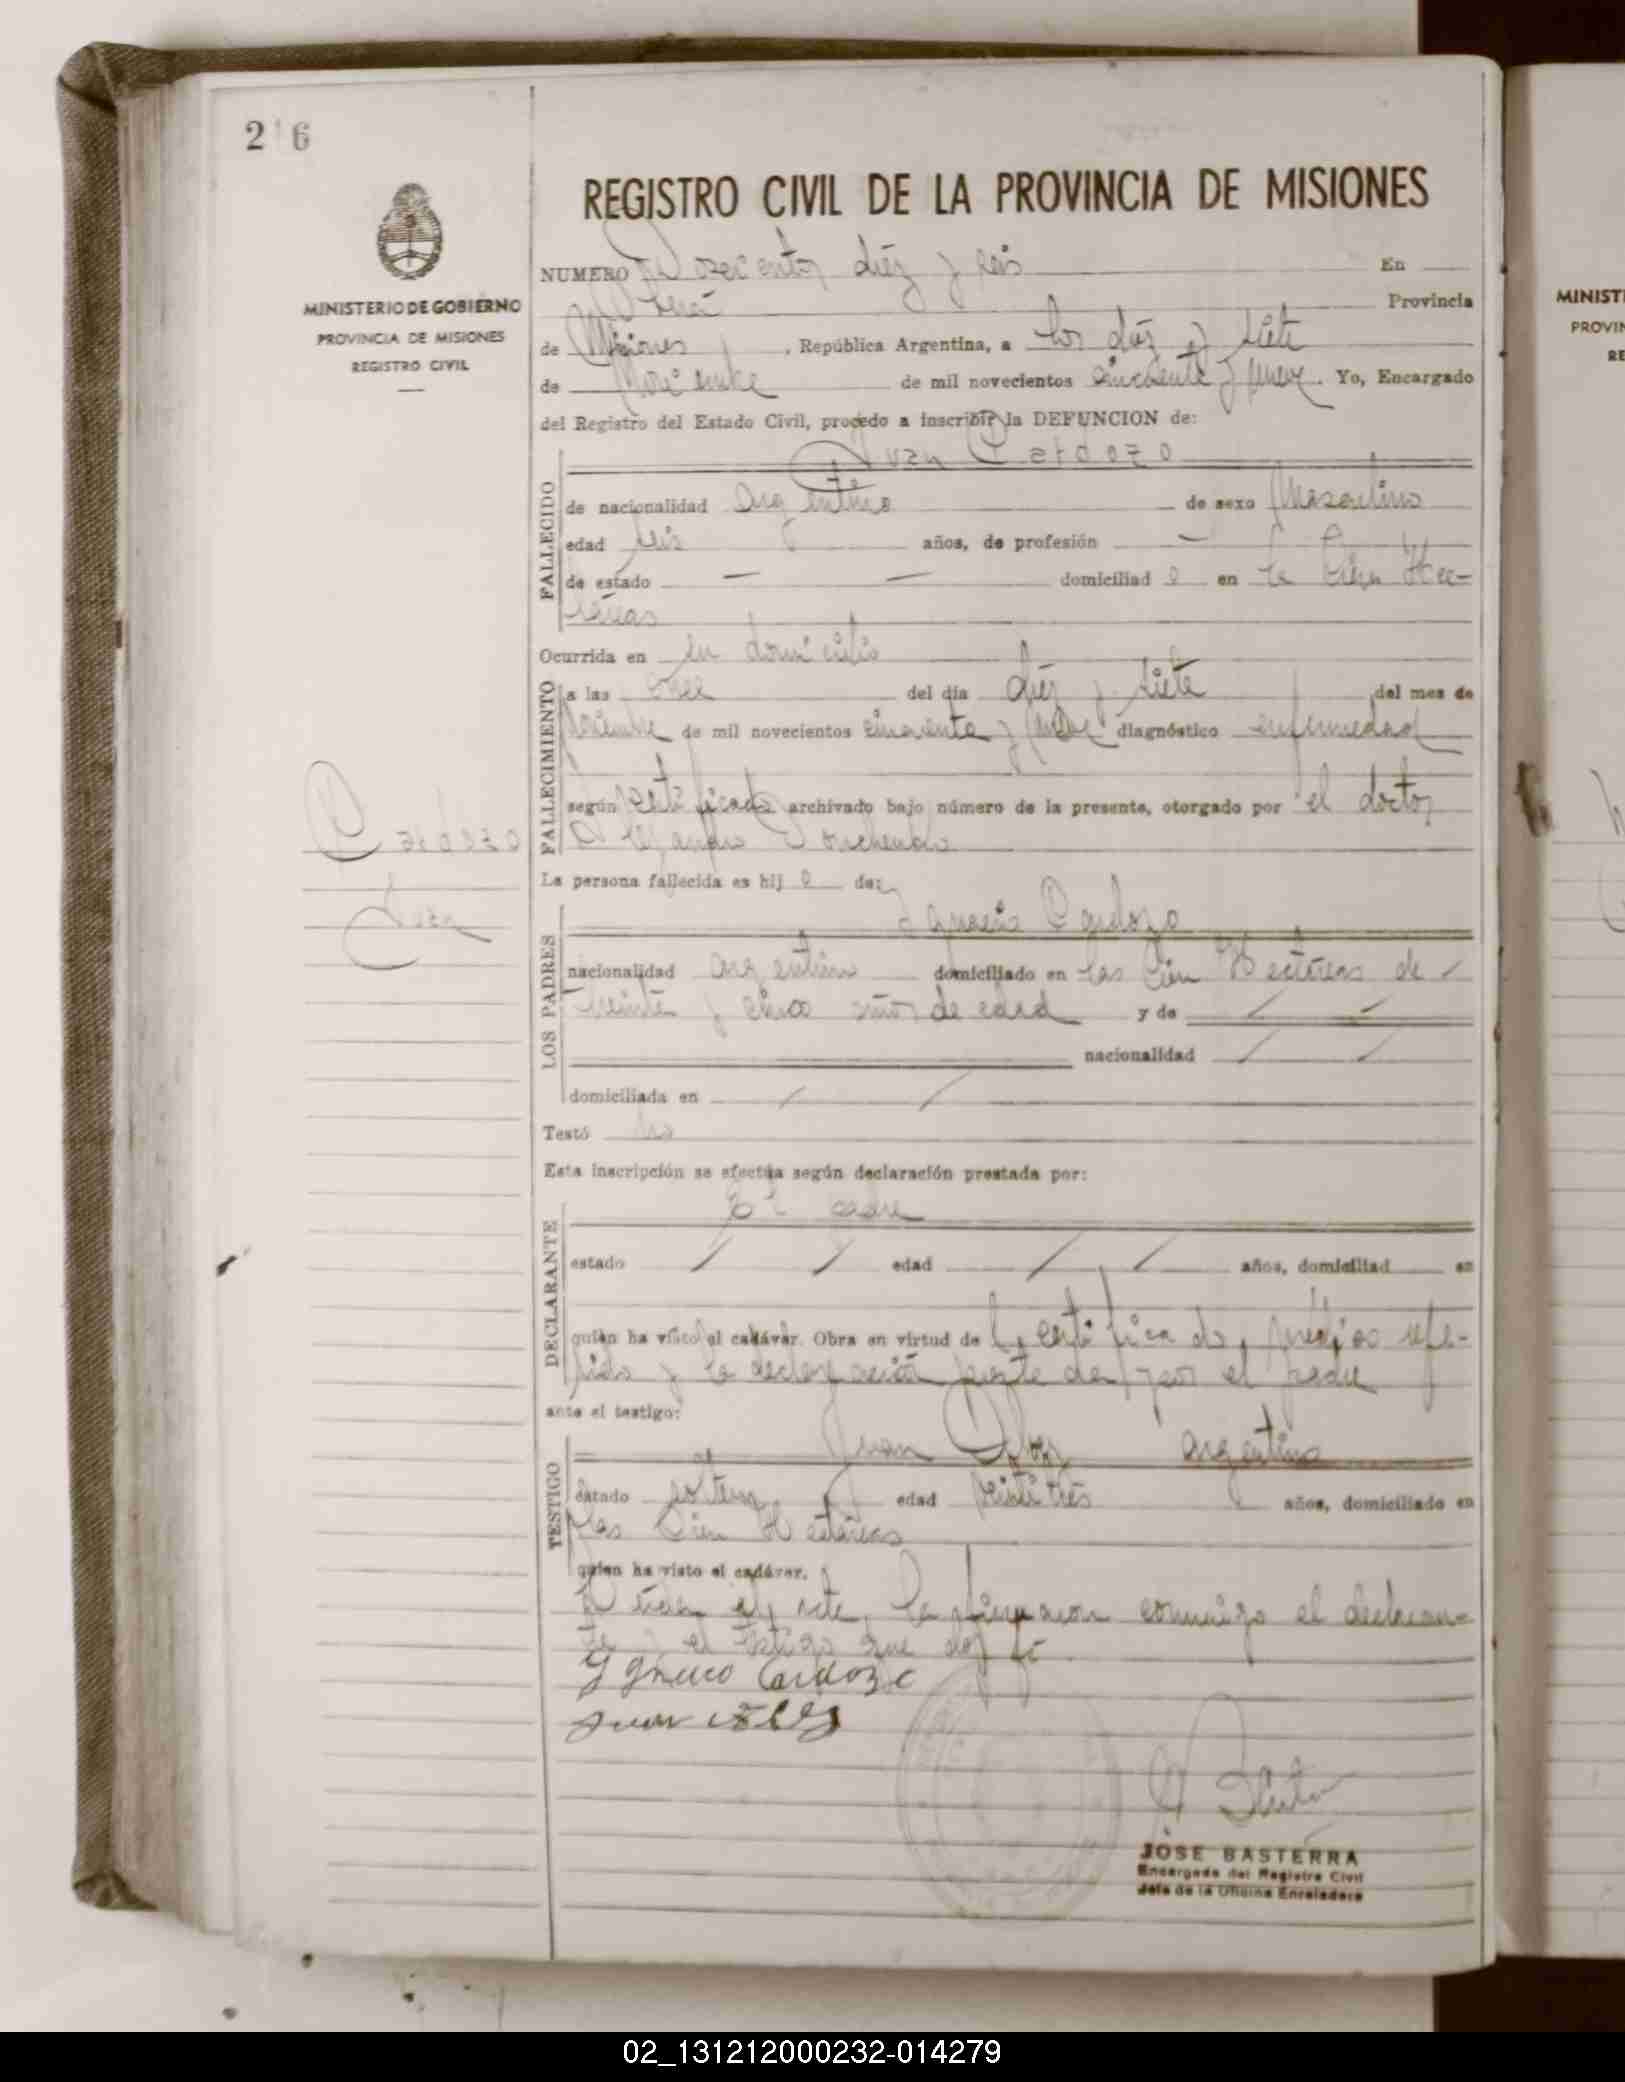 2 6
REGISTRO CIVIL DE LA PROVINCIA DE MISIONES
MINISTERIO DE GOBIERNO
PROVINCIA DE MISIONES
REGISTRO CIVIL
NUMERO Doscientos diéz y seis En
Provincia
de Misiones, República Argentina, a los diéz y siete
de Noviembre de mil novecientos cincuenta y nueve. Yo, Encargado
del Registro del Estado Civil, procedo a inscribir la DEFUNCION de:
Juan Cardozo
FALLECIDO
de nacionalidad argentino de sexo Masculino
edad seis años, de profesión —
de estado — — domiciliad o en Cien Hec-
táreas
Ocurrida en su domicilio
FALLECIMIENTO
a las once del día diéz y siete del mes de
Noviembre de mil novecientos cincuenta y nueve diagnóstico enfermedad
según certificado archivado bajo número de la presente, otorgado por el doctor
Alejandro
Cardozo
Juan
La persona fallecida es hij o de:
LOS PADRES
Ignacio Cardozo
nacionalidad argentino domiciliado en las Cien Hectáreas de
treinta y cinco años de edad y de
nacionalidad
domiciliada en
Testó no
Esta inscripción se efectúa según declaración prestada por:
DECLARANTE
El padre
estado edad años, domiciliad en
quién ha visto el cadáver. Obra en virtud de certificado médico refe-
rido y la declaración por el padre
ante el testigo:
TESTIGO
Juan argentino
estado soltero edad veintitres años, domiciliado en
las Cien Hectáreas
quien ha visto el cadáver.
Leída el acta, la firmaron conmigo el declaran-
te y el testigo que doy fé
Ygnacio Cardozo
Juan
JOSE BASTERRA
Encargado del Registro Civil
Jefe de la Oficina Enroladora
MINIST
PROVIN
RE
02_131212000232-014279